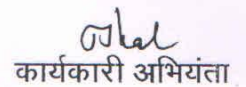 कार्यकारी अभियंता